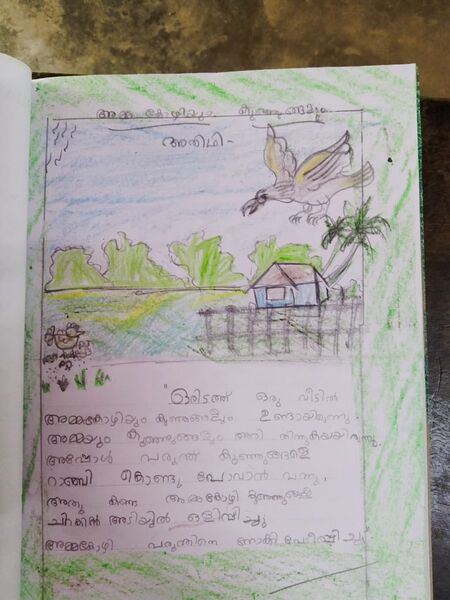 അമ്മ കോഴിയും കുഞ്ഞുങ്ങളും
അതിഥി-
"ഒരിടത്ത് ഒരു വീട്ടിൽ
അമ്മകോഴിയും കുഞ്ഞുങ്ങളും ഉണ്ടായിരുന്നു.
അമ്മയും കുഞ്ഞുങ്ങളും തീറ്റി തിന്നുകയായിരുന്നു.
അപ്പോൾ പരുന്ത് കുഞ്ഞുങ്ങളെ
റാഞ്ചി കൊണ്ടു പോവാൻ വന്നു,
അതു കണ്ട അമ്മകോഴി കുഞ്ഞുങ്ങളെ
ചിറകിൻ അടിയിൽ ഒളിപ്പിച്ചു
അമ്മകോഴി പരുന്തിനെ നോക്കി പേടിപ്പിച്ചു